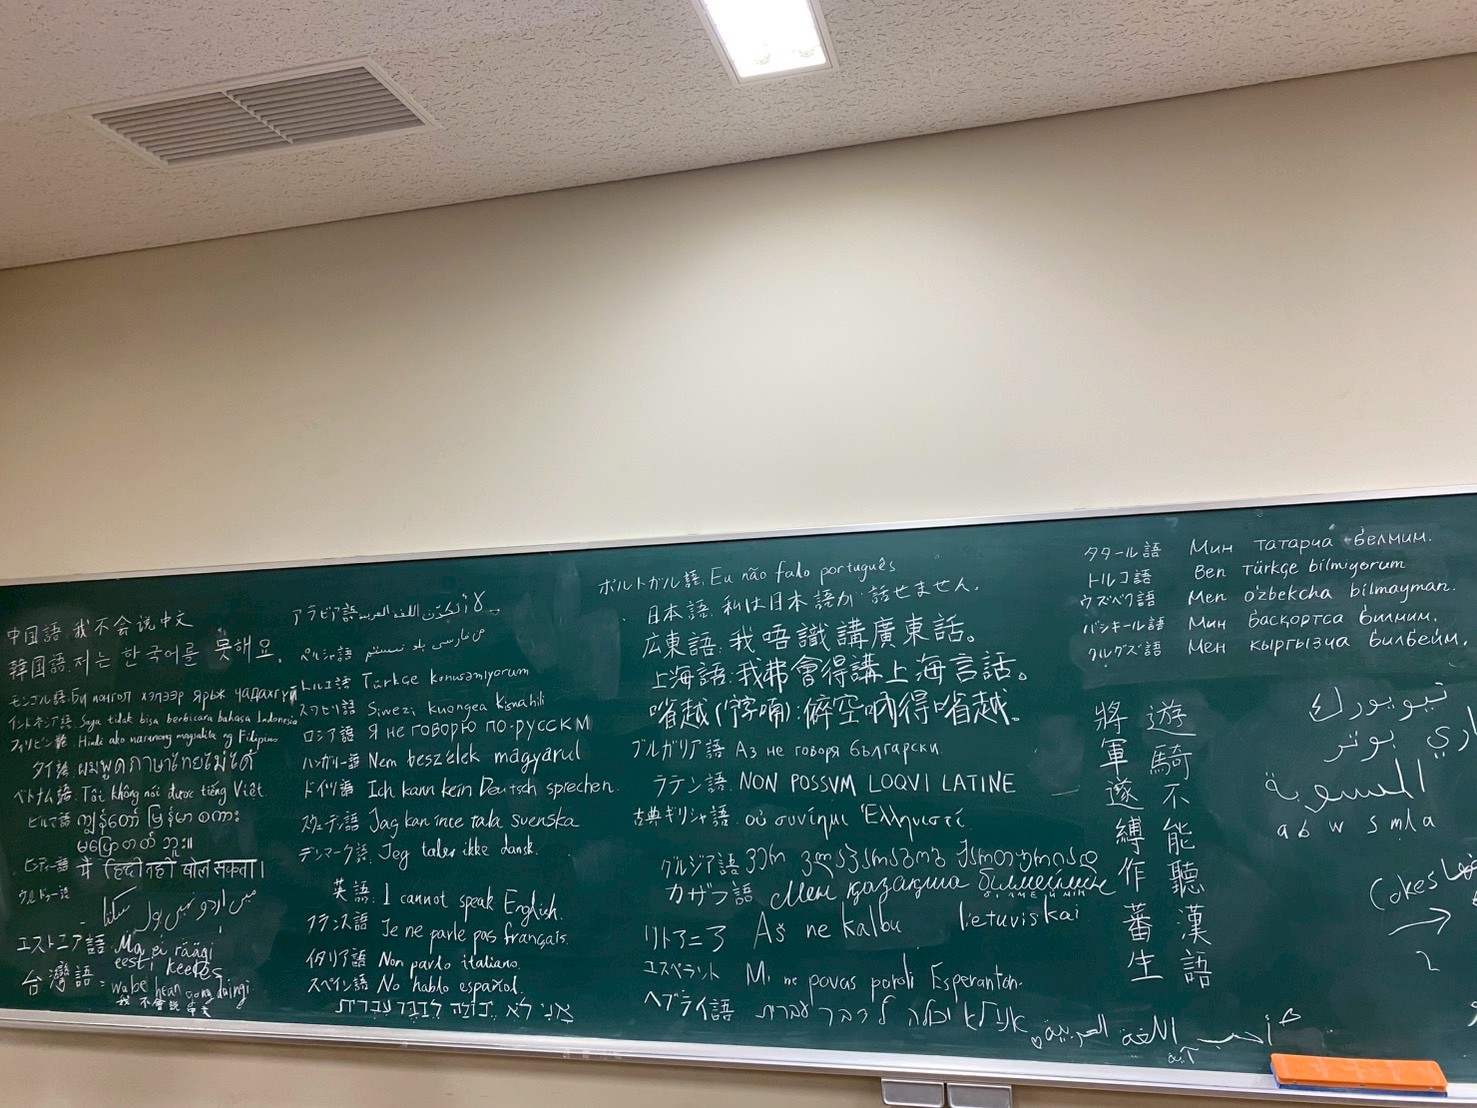 中国語: 我不会说中文
韓国語: 저는 한국어를 못해요.
モンゴル語: Би монгол хэлээр ярьж чадахгүй
インドネシア語: Saya tidak bisa berbicara bahasa Indonesia
フィリピン語: Hindi ako marunong magsalita ng Filipino
タイ語: ผมพูดภาษาไทยไม่ได้
ベトナム語: Tôi không nói được tiếng Việt
ビルマ語 ကျွန်တော် မြန်မာ စကား
မပြောတတ် ဘူး။
ヒンディー語: मैं हिंदी नहीं बोल सकता।
ウルドゥー語
میں اردو نہیں بول سکتا
エストニア語: Ma ei räägi
eesti keeles
台湾語:
我不會說
アラビア語
ペルシャ語
トルコ語 Türkçe konuşamıyorum
スワヒリ語 Siwezi kuongea kiswahili
ロシア語 Я не говорю по-русски
ハンガリー語 Nem beszélek magyarul
ドイツ語 Ich kann kein Deutsch sprechen.
スウェーデン語 Jag kan inte tala svenska
デンマーク語. Jeg taler ikke dansk.
英語. I cannot speak English.
フランス語 Je ne parle pas français.
イタリア語 Non parlo italiano.
スペイン語 No hablo español.
אני לא יכולה לדבר עברית
ポルトガル語. Eu não falo português
日本語. 私は日本語が話せません。
広東語: 我唔識講廣東話。
上海語: 我弗會得講上海言話。
ブルガリア語 Аз не говоря български
ラテン語: NON POSSVM LOQVI LATINE
古典ギリシャ語: οὐ συνίημι Ἑλληνιστί.
グルジア語
カザフ語 Мен қазақша білмеймін
білмеймін
リトアニア Aš ne kalbu lietuviskai
エスペラント Mi ne povas paroli Esperanton.
ヘブライ語 אני לא יכולה לדבר עברית
タタール語 Мин татарча белмим.
トルコ語 Ben Türkçe bilmiyorum
ウズベク語 Men o'zbekcha bilmayman.
バシキール語 Мин башҡортса билмим.
クルグズ語 Мен кыргызча билбейм.
遊騎不能聽漢語
將軍遂縛作蕃生
نيويورك
بوتر
a b w s m l a
Cokes
2